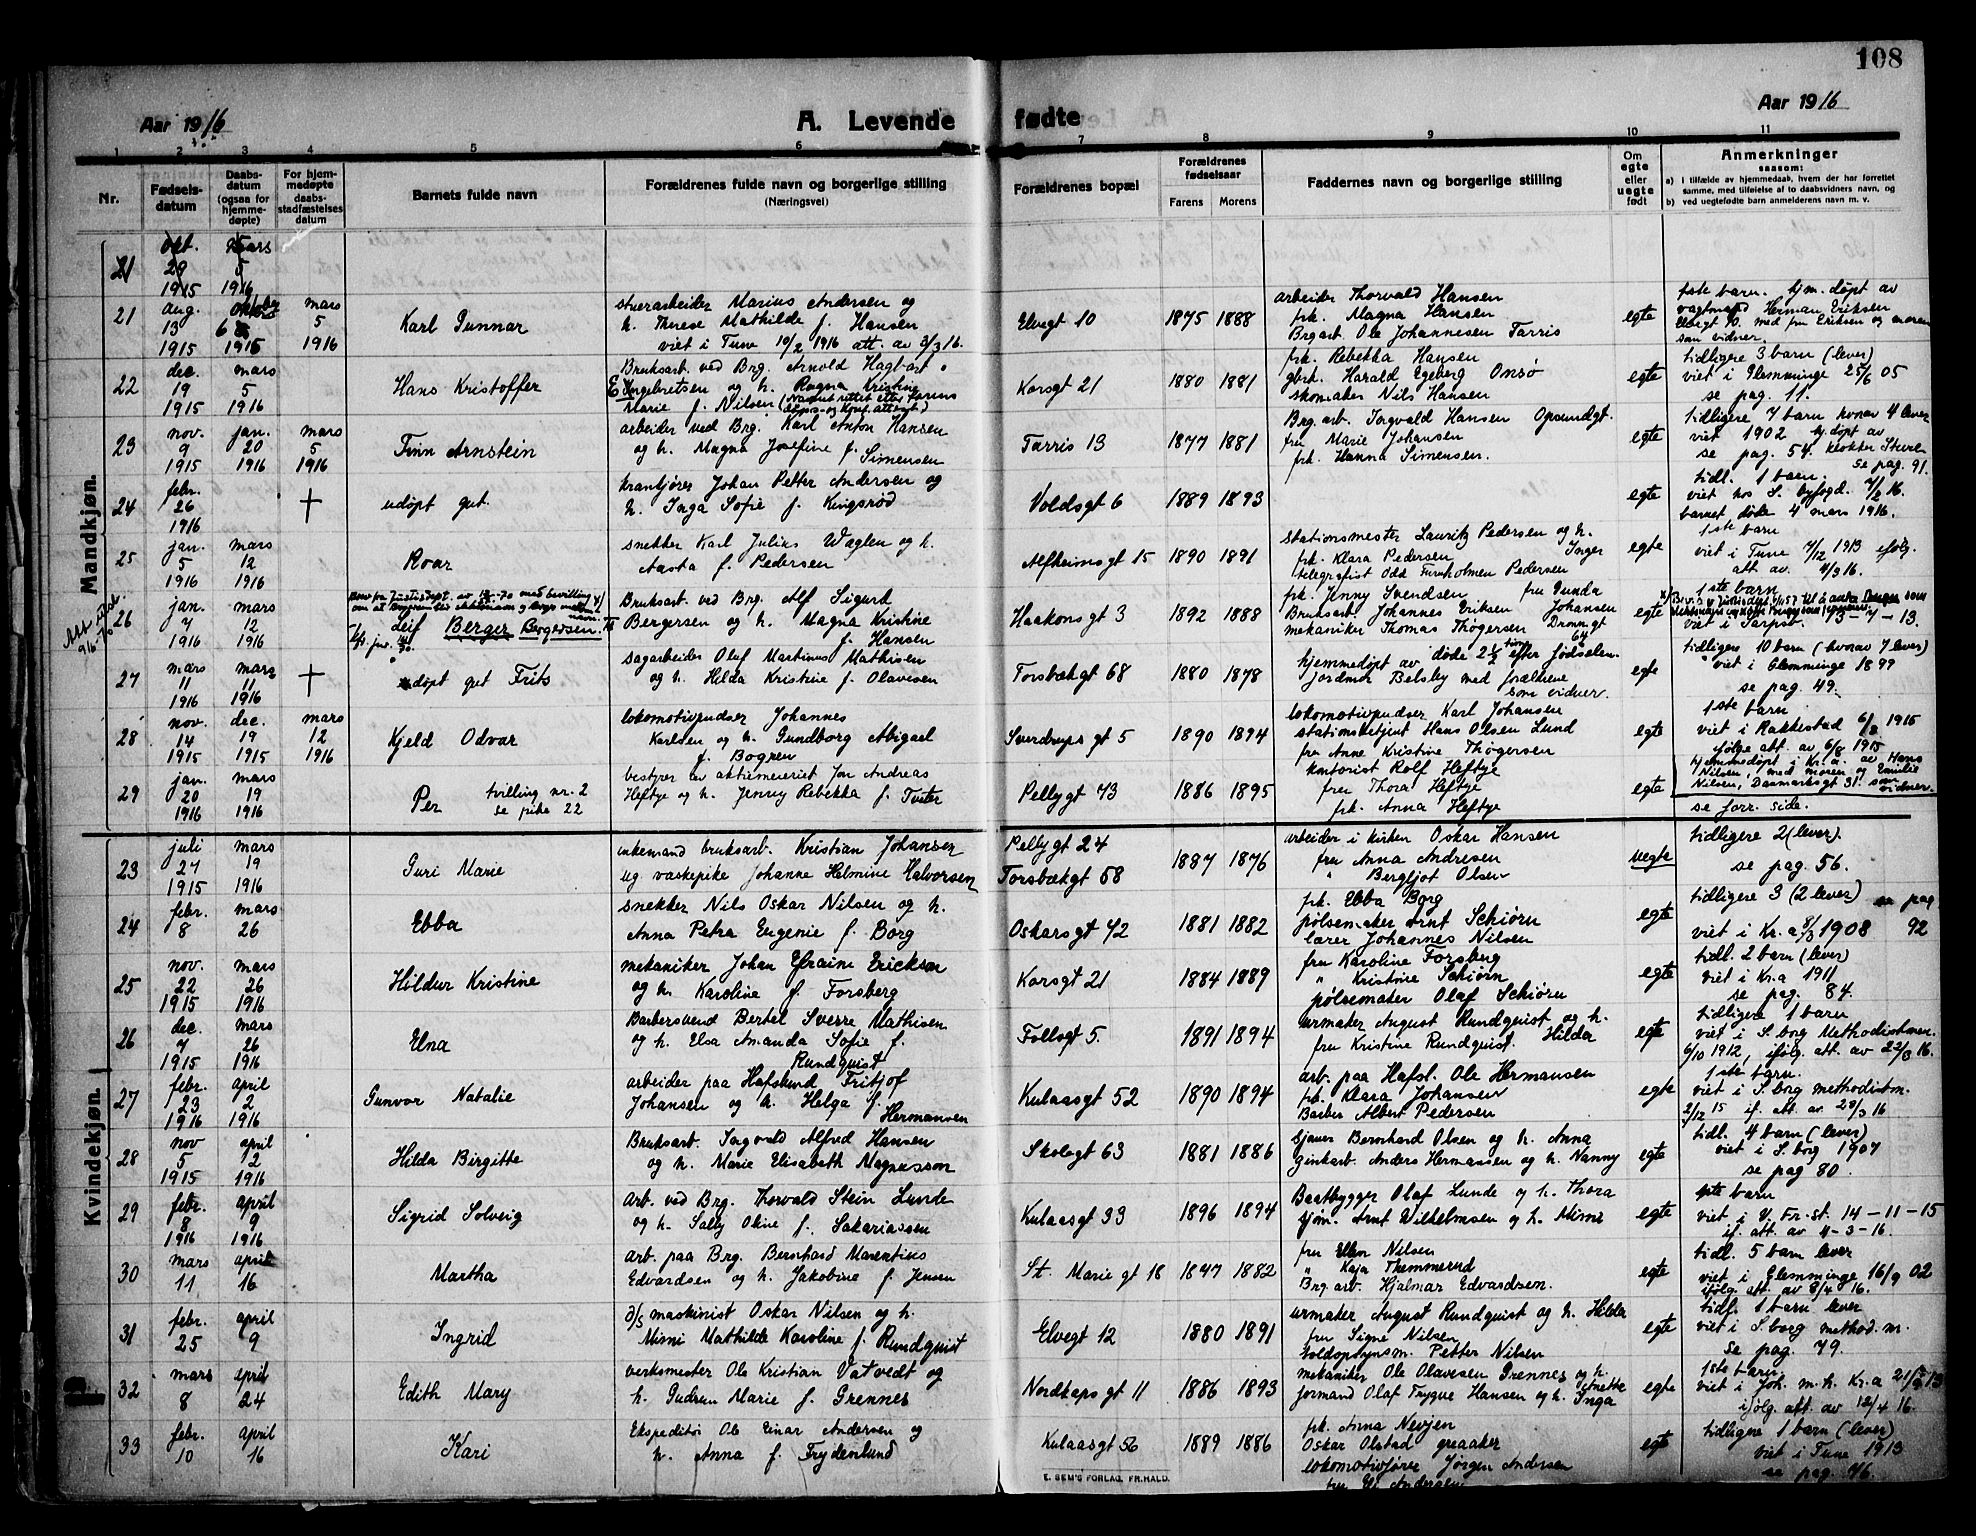 108
Aar 1916
A. Levende fødte
Aar 1916
1 2 3 4 5 6 7 8 9 10 11
Nr.
Fødsels-
datum
Daabs-
datum
(ogsaa for
hjemme-
døpte)
For hjem-
medøpte
daabs-
stadfæstelses
datum
Barnets fulde navn
Forældrenes fulde navn og borgerlige stilling
(Næringsvei)
Forældrenes bopæl
Forældrenes
fødselsaar
Farens Morens
Faddernes navn og borgerlige stilling
Om
egte
eller
uegte
født
Anmerkninger
saasom:
a) i tilfælde av hjemmedaab, hvem der har forrettet
samme, med tilføielse af to daabsvidners navn, og
b) ved uegtefødte barn anmelderens navn m. v.
Mandkjøn.
21 okt. 29 1915 mars 5 1916
21 aug. 13 1915 oktober 6 1915 mars 5 1916
Karl Gunnar
stuerarbeider Marius Andersen og
h. Therese Mathilde f. Hansen
viet i Tune 10/2 1916 att. av 3/3 16.
Elvegt 10 1875 1888
arbeider Thorvald Hansen
frk. Magna Hansen
Brgarb. Ole Johannesen Tarris
egte
1ste barn. hjm. døpt av
vagtmand Herman Eriksen
Elvegt 10. med fru Eriksen og moren
som vidner.
22 dec. 19 1915 mars 5 1916
Hans Kristoffer
Bruksarb. ved Brg. Arnold Hagbart
Engebretsen og h. Ragna Kristine
Marie f. Nilsen (Navnet rettet efter farens
døps- og konf. attest)
Korsgt 21 1880 1881
frk. Rebekka Hansen
gbrk. Harald Egeberg Onsø
skomaker Nils Hansen
egte
tidligere 3 barn (lever)
viet i Glemminge 25/6 05
se pag. 11.
23 nov. 9 1915 jan. 20 1916 mars 5 1916
Finn Arnstein
arbeider ved Brg. Karl Anton Hansen
og h. Magna Josefine f.
Simensen
Tarris 13 1877 1881
Brg. arb. Ingvald Hansen Opsundgt.
fru Marie Johansen
frk. Hanna Simensen.
egte
tidligere 7 barn hvorav 4 lever
viet 1902 hj. døpt av
se pag. 54. klokker
se pag. 91.
24 febr. 26 1916 †
udøpt gut.
krankjører Johan Petter Andersen og
h. Inga Sofie f. Kingsrød
Voldsgt 6 1889 1893
egte
tidl. 1 barn.
viet hos S. byfogd. 7/2 16.
barnet døde 4 mars 1916.
25 jan. 5 1916 mars 12 1916
Roar
snekker Karl Julius Waglen og h.
Aasta f. Pedersen
Alfheimsgt 15 1890 1891
stationsmester Lauritz Pedersen og h.
frk. Klara Pedersen Inger
telegrafist Odd Furuholmen Pedersen
egte
1ste barn
viet i Tune 7/12 1913 ifølg.
att. av 4/3 16.
26 jan. 7 1916 mars 12 1916
Leif Berger Bergersen.
Bruksarb. ved Brg. Alf Sigurd
Bergersen og h. Magna Kristine
f. Hansen
Haakonsgt 3 1892 1888
frk. Jenny Svendsen fru Gunda
Bruksarb. Johannes Eriksen Johansen
mekaniker Thomas Thøgersen Dronn.gt
64
egte
1ste barn
viet i Sarpsb. 13 - 7 - 13.
27 mars 11 1916 mars 11 1916 †
døpt gut Frits
sagarbeider Oluf Martinus Mathisen
og h. Hilda Kristine f. Olavesen
Torsbækgt 68 1880 1878
hjemmedøpt av døde 2 1/2 time efter fødselen.
jordmor Belsby med forældrene
som vidner.
egte
tidligere 10 barn (hvorav 7 lever)
viet i Glemminge 1899
se pag. 49.
28 nov. 14 1915 dec. 19 1915 mars 12 1916
Kjeld Odvar
lokomotivpudser Johannes
Karlsen og h. Gundborg Abigael
f. Bogren
Sverdrups gt 5 1890 1894
lokomotivpudser Karl Johansen
stationsbetjent Hans Olsen Lund
fru Anne Kristine Thøgersen
egte
1ste barn
viet i Rakkestad 6/8 1915
ifølge att. av 6/8 1915
hjemmedøpt i Kr.a. av Hans
Nilsen, med moren og Emilie
Nilsen, Danmarksgt 31. som
vidner.
29 jan. 20 1916 mars 19 1916
Per tvilling nr. 2
se pike 22
bestyrer av aktiemeieriet Jon Andreas
Heftye og h. Jenny Rebekka f. Tveter
Pellygt 43 1886 1895
kontorist Rolf Heftye
fru Thora Heftye
frk. Anna Heftye
egte
se forr. side.
Kvindekjøn.
23 juli 27 1915 mars 19 1916
Guri Marie
enkemand bruksarb. Kristian Johansen
ug. vaskepike Johanne Helmine Halvorsen
Pellygt 24
Torsbækgt 58
1887 1876
arbeider i kirken Oskar Hansen
fru Anna Andresen
" Bergljot Olsen
uegte
tidligere 2 (lever).
se pag. 56.
24 febr. 8 mars 26
Ebba
snekker Nils Oskar Nilsen og h.
Anna Petra Eugenie f. Borg
Oskarsgt 42 1881 1882
frk. Ebba Borg
pølsemaker Arnt Schiørn
lærer Johannes Nilsen
egte
tidligere 3 (2 lever) se pag
viet i Kr.a 8/3 1908 92
25 nov. 22 1915 mars 26 1916
Hildur Kristine
mekaniker Johan Efraim Erickson
og h. Karoline f. Forsberg
Korsgt 21 1884 1889
fru Karoline Forsberg
" Kristine Schiørn
pølsemaker Olaf Schiørn
egte
tidl. 2 barn (lever)
viet i Kr.a 1911
se pag. 84.
26 dec. 7 1915 mars 26 1916
Elna
Barbersvend Bertel Sverre Mathisen
og h. Elsa Amanda Sofie f.
Rundquist
Follogt 5. 1891 1894
urmaker August Rundquist og h.
fru Kristine Rundquist. Hilda
egte
tidligere 1 barn
viet i S.borg Methodistmen.
6/10 1912, ifølg. att. av 22/3 16.
27 febr. 23 1916 april 2 1916
Gunvor Natalie
arbeider paa Hafslund Fritjof
Johansen og h. Helga f.
Hermansen
Kulaasgt 52 1890 1894
arb. paa Hafsl. Ole Hermansen
frk. Klara Johansen
Barber Albert Pedersen
egte
1ste barn.
viet i S.borg methodistm.
2/12 15 if. att. av 28/3 16
28 nov 5 1915 april 2 1916
Hilda Birgitte
Bruksarb. Ingvald Alfred Hansen
og h. Marie Elisabeth Magnusson
Skolegt 63 1881 1886
Sjauer Bernhard Olsen og h. Anna
Ginkarb. Anders Hermansen og h. Nanny
egte
tidl. 4 barn (lever)
viet i S.borg 1907
se pag 80.
29 febr. 8 1916 april 9 1916
Sigrid Solveig
arb. ved Brg. Thorvald Stein Lunde
og h. Sally Oline f. Sakariassen
Kulaasgt 33 1896 1894
Baatbygger Olaf Lunde og h. Thora
Tjøm. Arnt Wilhelmsen og h. Mimi
egte
1ste barn
viet i V. Fr.st. 14 - 11 - 15
if. att. av 4 - 3 - 16.
30 mars 11 april 16
Martha
arb. paa Brg. Bernhard Marentius
Edvardsen og h. Jakobine f. Jensen
St. Marie gt 18 1847 1882
fru Ellen Nilsen
" Kaja Themmerud
Brg. arb. Hjalmar Edvardsen.
egte
tidl. 5 barn lever
viet i Glemminge 16/9 02
ifølg. att. av 8/4 16.
31 febr. 25 april 9
Ingrid
d/s maskinist Oskar Nilsen og h.
Mimi Mathilde Karoline f. Rundquist
Elvegt 12 1880 1891
urmaker August Rundquist og h. Hilda
fru Signe Nilsen
Voldoptynsm. Petter Nilsen
egte
tidl. 1 barn lever
viet i S.borg method. m.
se pag. 79.
32 mars 8 april 24
Edith Mary
verksmester Ole Kristian Vatvedt og
h. Gudrun Marie f. Grennes
Nordkaps gt 11 1886 1893
mekaniker Ole Olavesen Grennes og h.
formand Olaf Trygve Hansen og h. Inga
egte
1ste barn
viet i Joh. m.h. Kr.a
ifølg. att. av 12/4 16.
33 febr. 10 april 16
Kari
Ekspeditør Ole Einar Andersen og
h. Anna f. Frydenlund
Kulaasgt 56 1889 1886
frk. Anna Nevjen
Oskar Olstad greaaker
lokomotivfører Jørgen Andersen
egte
tidligere 1 barn (lever)
viet i Tune 1913
se pag. 46.
E. SEM'S FORLAG, FR.HALD.